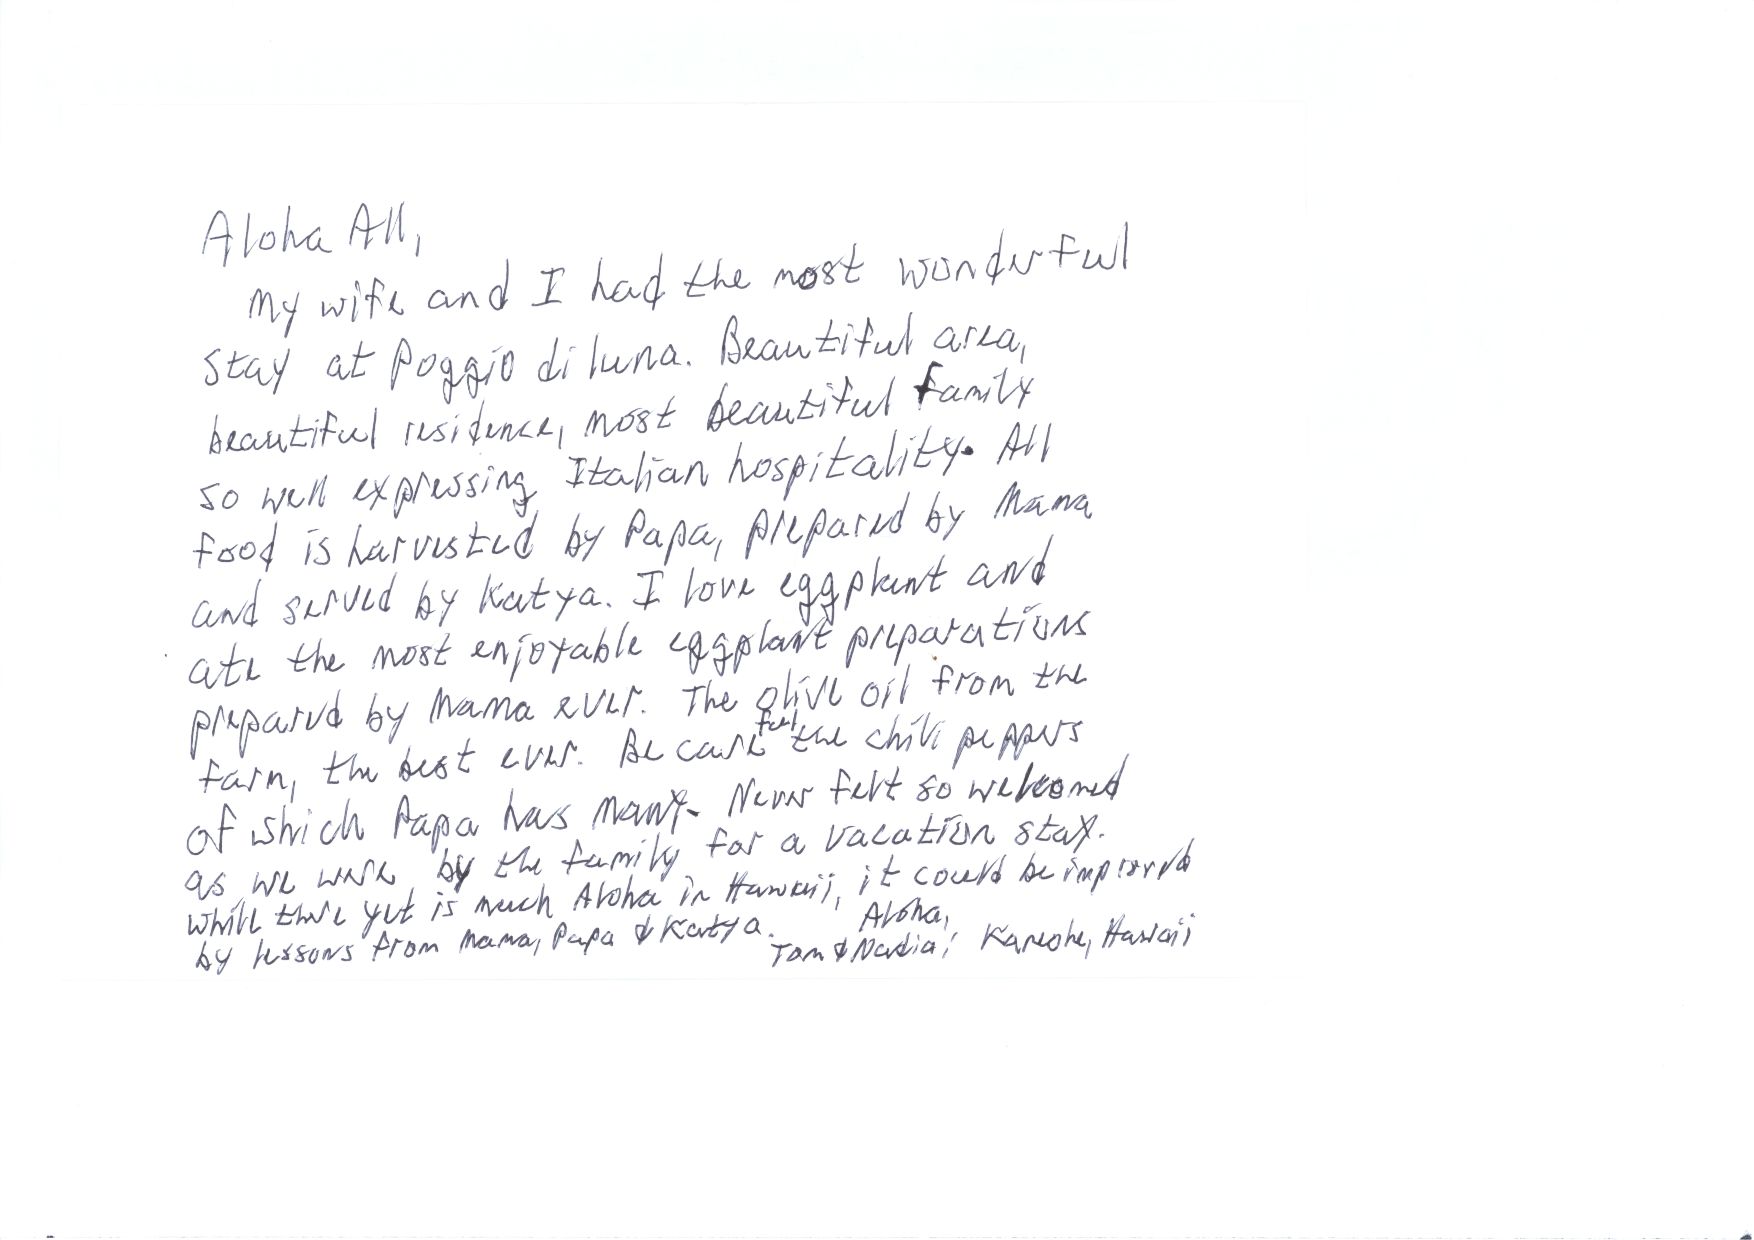 Aloha All,
My wife and I had the most wonderful
stay at Poggio di luna. Beautiful area,
beautiful residence, most beautiful family
so well expressing Italian hospitality. All
food is harvested by Papa, prepared by Mama
and served by Katya. I love eggplant and
ate the most enjoyable eggplant preparations
prepared by Mama ever. The olive oil from the
farm, the best ever. Be careful the chili peppers
of which Papa has many. Never felt so welcomed
as we were by the family for a vacation stay.
While there yet is much Aloha in Hawaii, it could be improved
by lessons from Mama, Papa & Katya.
Aloha,
Tom & Nadia, Kaneohe, Hawaii